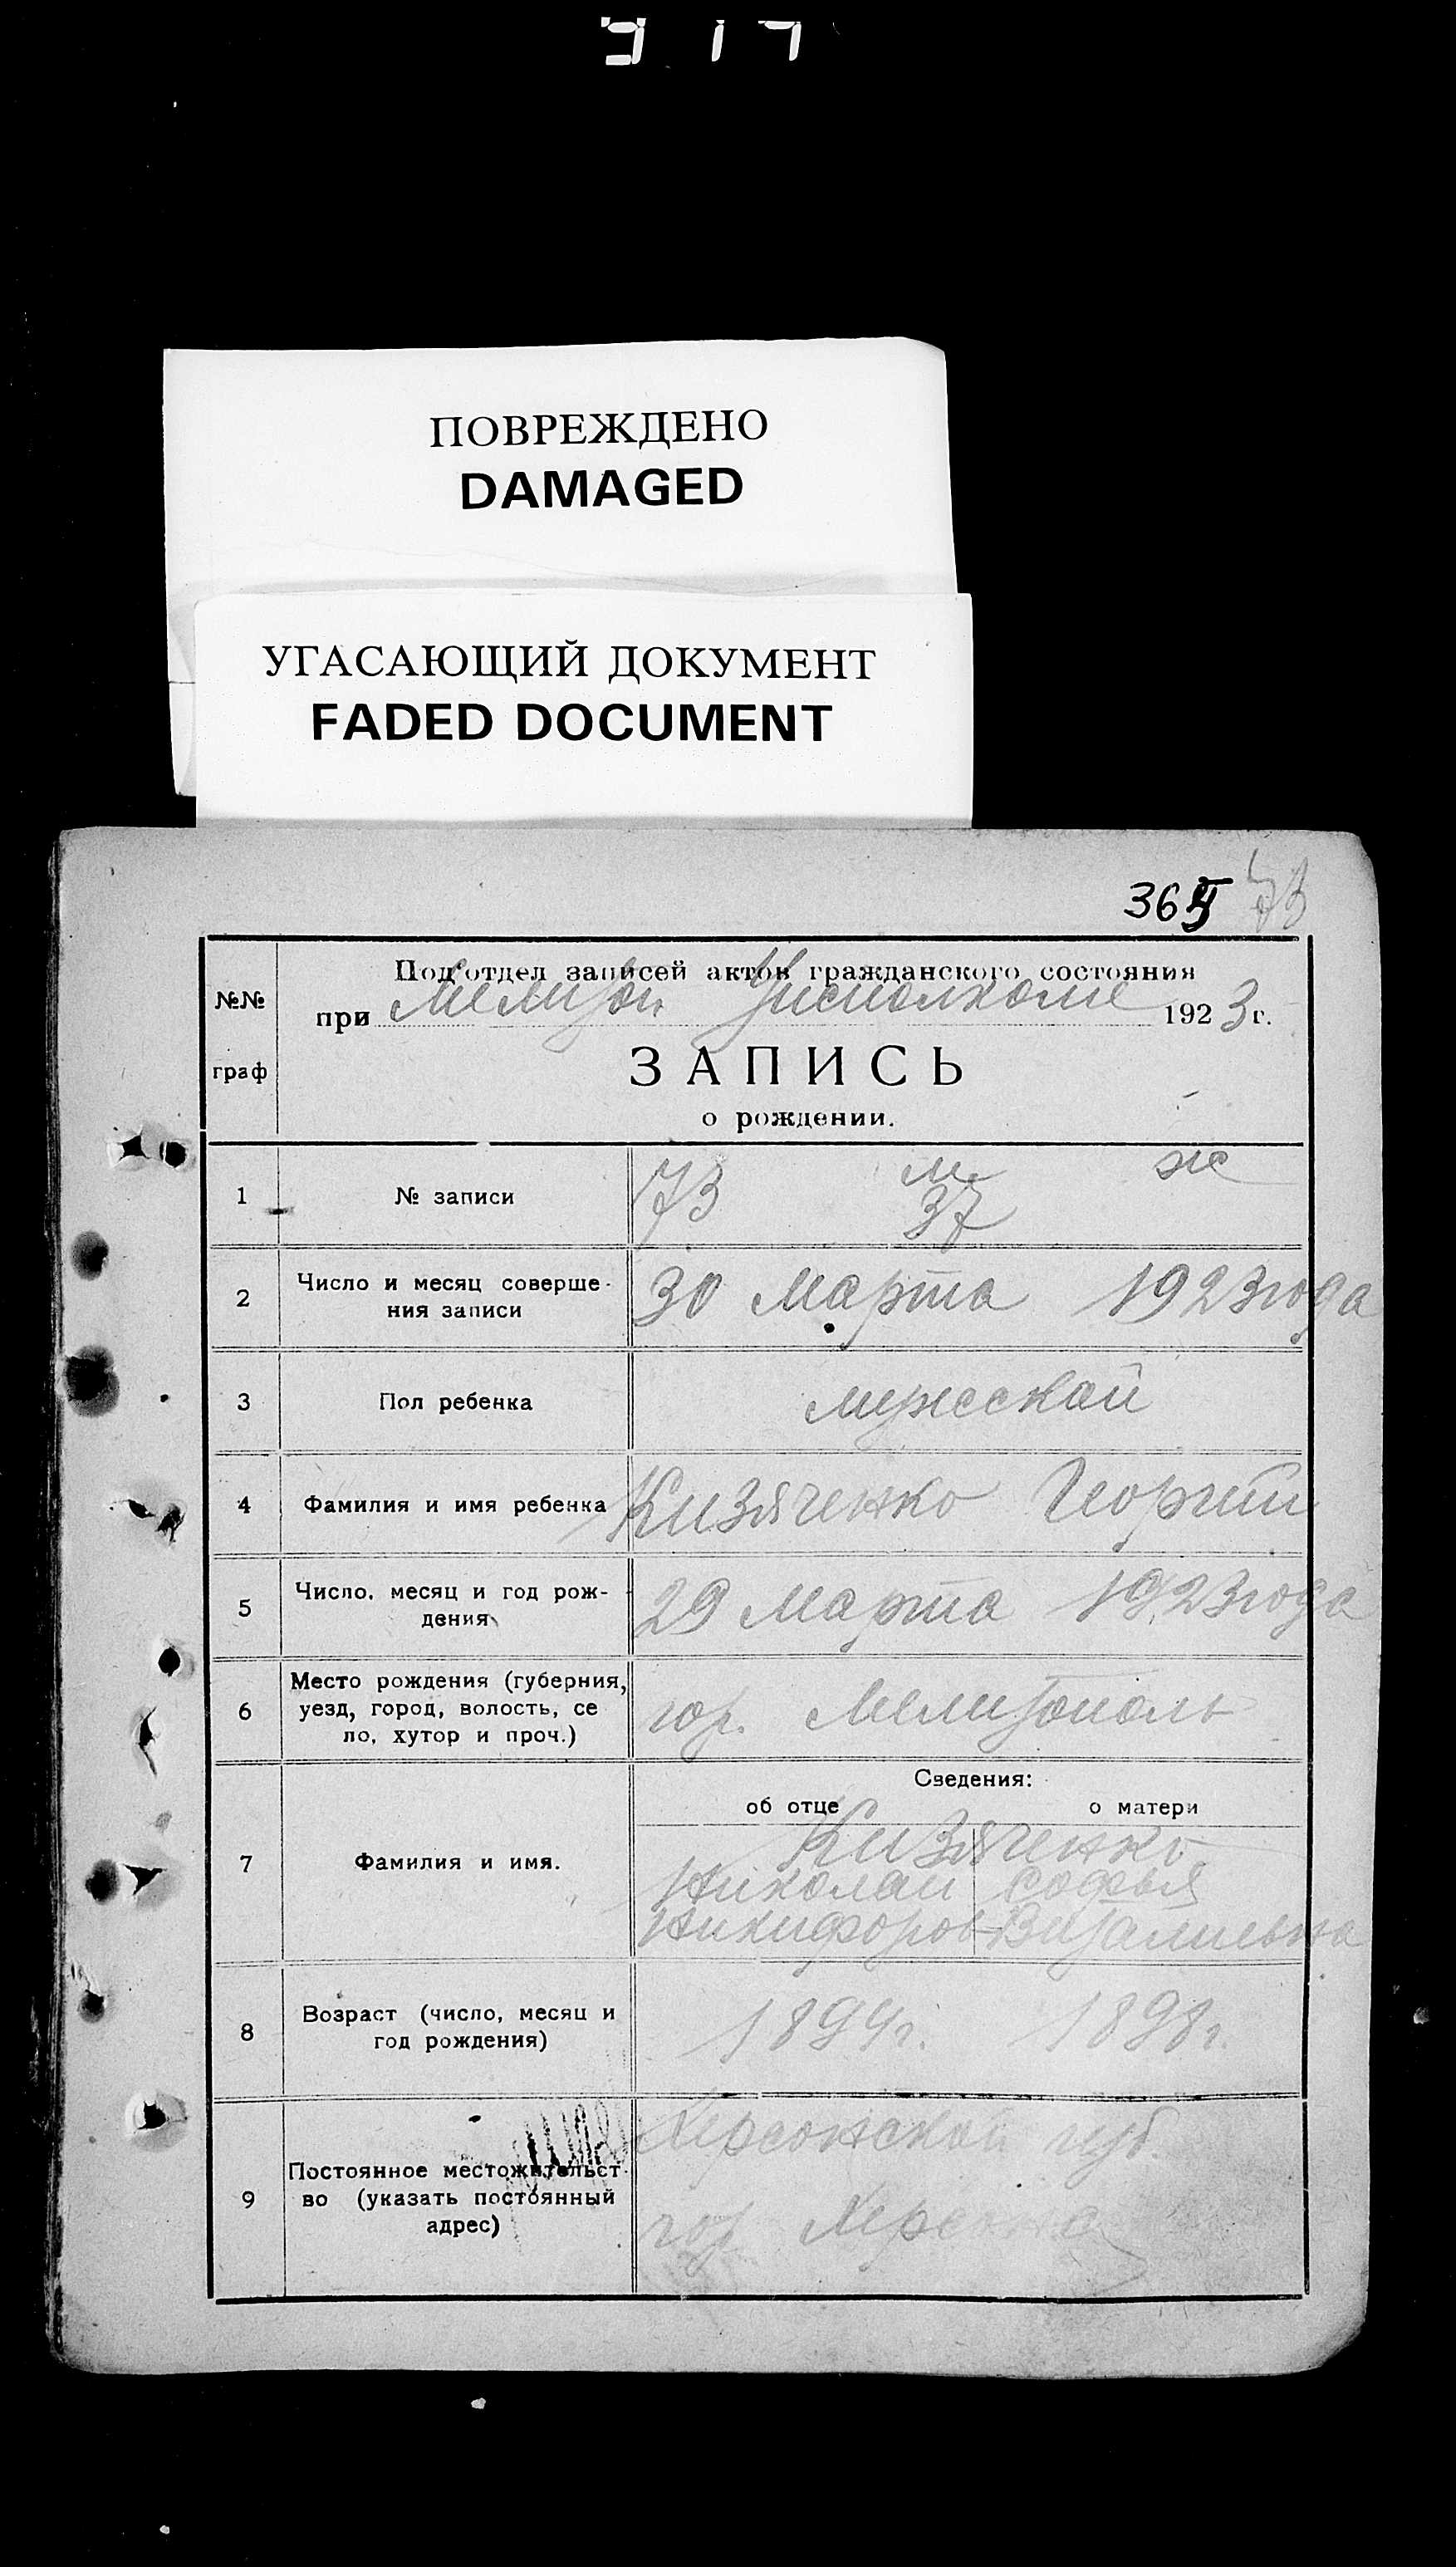 ПОВРЕЖДЕНО
DAMAGED
УГАСАЮЩИЙ ДОКУМЕНТ
FADED DOCUMENT
73
№№
граф
Под'отдел записей актов гражданского состояния
при Мелитоп. Исполкоме 1923 г.
ЗАПИСЬ
о рождении.
1 № записи 73 м. 37 ж
2 Число и месяц соверше-
ния записи 30 Марта 1923 года
3 Пол ребенка мужской
4 Фамилия и имя ребенка Кизяченко Георгий
5 Число, месяц и год рож-
дения 29 Марта 1923 года
6 Место рождения (губерния,
уезд, город, волость, се
ло, хутор и проч.) гор. Мелитополь
Сведения:
об отце о матери
7 Фамилия и имя. Кизяченко
Николай Софья
Никифоров Витальевна
8 Возраст (число, месяц и
год рождения) 1894 г. 1898 г.
9 Постоянное местожительст-
во (указать постоянный
адрес) Херсонской губ.
гор. Херсона